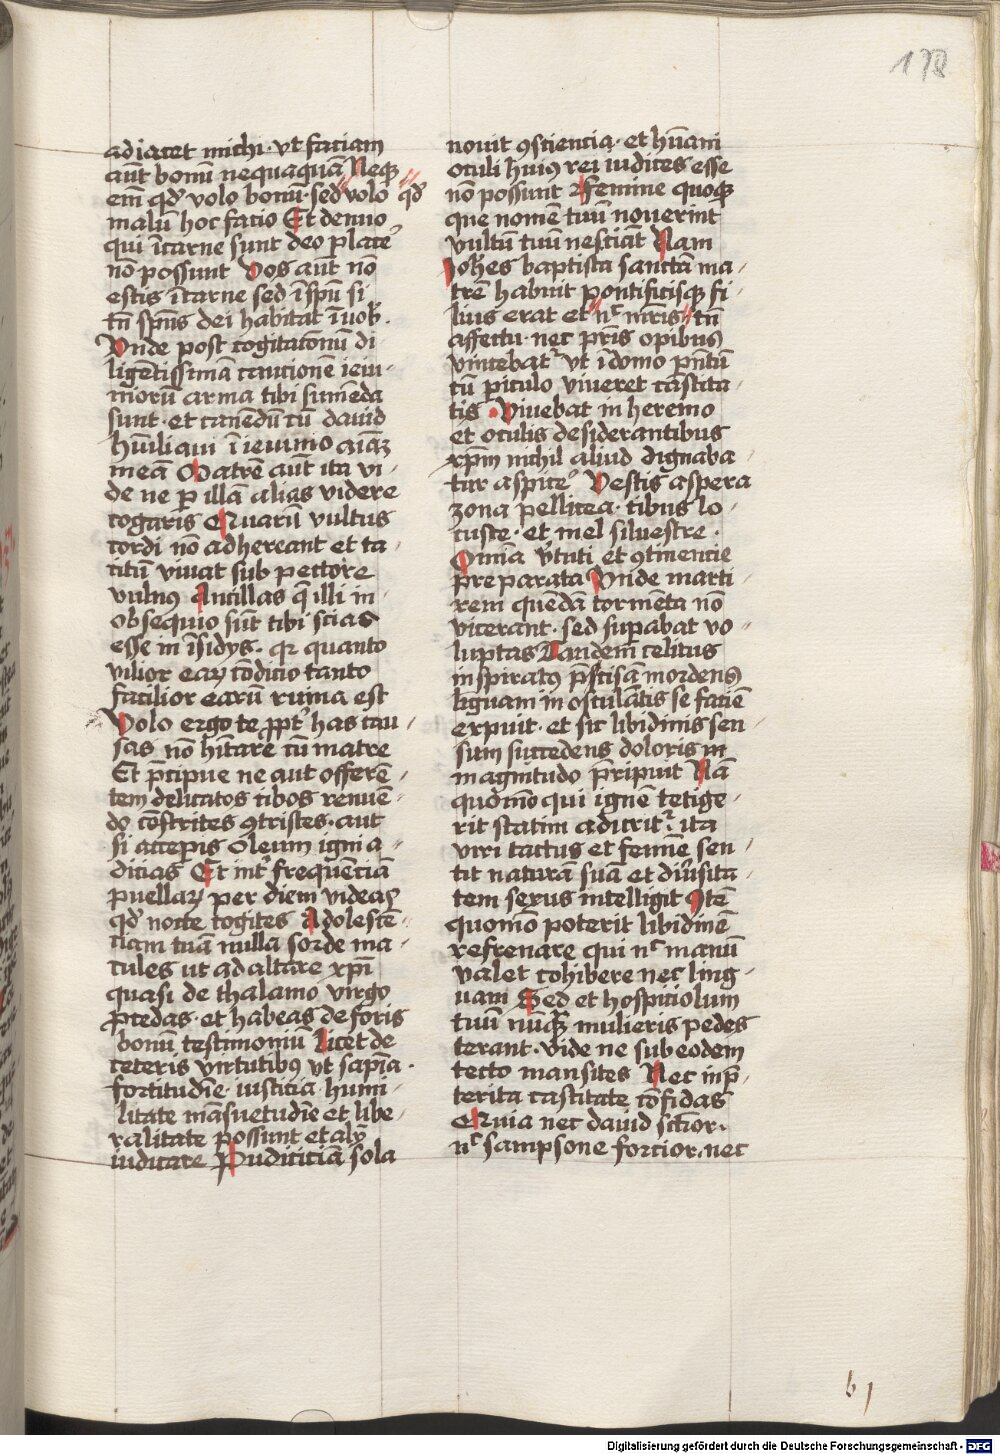 178
adiacet michi · vt faciam
aūt bonū nequaquā Neqꝫ
em̄ qd̛ volo bonū · sed volo qd̛
malū hoc facio Et denuo
qui ī carne sunt deo place͛
nō possunt Vos aūt nō
estis ī carne sed ī spū si
tn̄ spūs dei habitat ī uob̛ ·
Vnde post cogitac̄onū di
ligētissimā cautionē ieiu /
nioꝝ arma tibi sumēda
sunt · et canēdū cū dauid
hūiliaui ī ieiunio aīaꝫ
meā Matrē aūt ita vi /
de ne ꝑ illā alias videre
cogaris Quarū vultus
cordi nō adhereant et ta /
citū viuat sub pectore
vulnꝰ Ancillas q̄ illi in /
obsequio sūt tibi scias
esse in īsidys · qr quanto
vilior eaꝝ c̄odicio tanto
facilior earū ruina est
Volo ergo te ꝓpt͛ has cau /
sas nō hītare cū matre
Et p̄cipue ne aut offerē /
tem delicatos cibos renuē /
do cōtristes · aut
si accepis oleum igni a /
dicias Et int͛ frequēciā
puellaꝝ per diem videas
qd̛ nocte cogites Adolescē /
ciam tuā nulla sorde ma /
cules ut ad altare xp̄i
quasi de thalamo virgo
ꝓcedas · et habeas de foris
bonū testimoniū Licet de
ceteris virtutibꝰ vt sapīa ·
fortitudīe · iusticia · humi /
litate māsuetudīe et libe /
ralitate possunt et aly
iudicare Pudiciciā sola
nouit ꝯsciencia · et hūani
oculi huiꝰ rei iudices esse
nō possunt Femine quoqꝫ
que nomē tuū nouerint
vultū tuū nesciāt Nam
Joh̄es baptista sanctā ma /
trē habuit pontificisqꝫ fi /
lius erat et nᶜ mr̄is tn̄
affectu · nec pr̄is opibus
vincebat᷑ vt ī domo pn̄tū
cū piculo viueret castita /
tis · Viuebat in heremo
et oculis desiderantibus
xp̄m nichil aliud dignaba /
tur aspice͛ Vestis aspera
zona pellicea · cibus lo /
custe · et mel siluestre ·
Omīa v͛tuti et ꝯtinencie
preparata Vnde marti /
rem quēdā tormēta nō
vicerant · sed supabat vo /
luptas Tandem celitus
inspiratꝰ p̄scisā mordens
līguam in osculātis se faciē
expuit · et sic libidinis sen /
sum succedens doloris in
magnitudo p̄ripuit Nā
quōmo qui ignē tetige /
rit statim adurit᷑ ita
viri tactus et femīe sen /
tit naturā suā et diu͛sita /
tem sexus intelligit
quomō poterit libidinē
refrenare qui nᶜ manū
valet cohibere nec ling /
uam Sed et hospiciolum
tuū nūqꝫ mulieris pedes
terant · vide ne sub eodem
tecto mansites Nec in p̄ /
terita castitate cōfidas
Quia nec dauid sc̄ior ·
nᶜ sampsone forcior · nec
b j
Digitalisierung gefördert durch die Deutsche Forschungsgemeinschaft - DFG